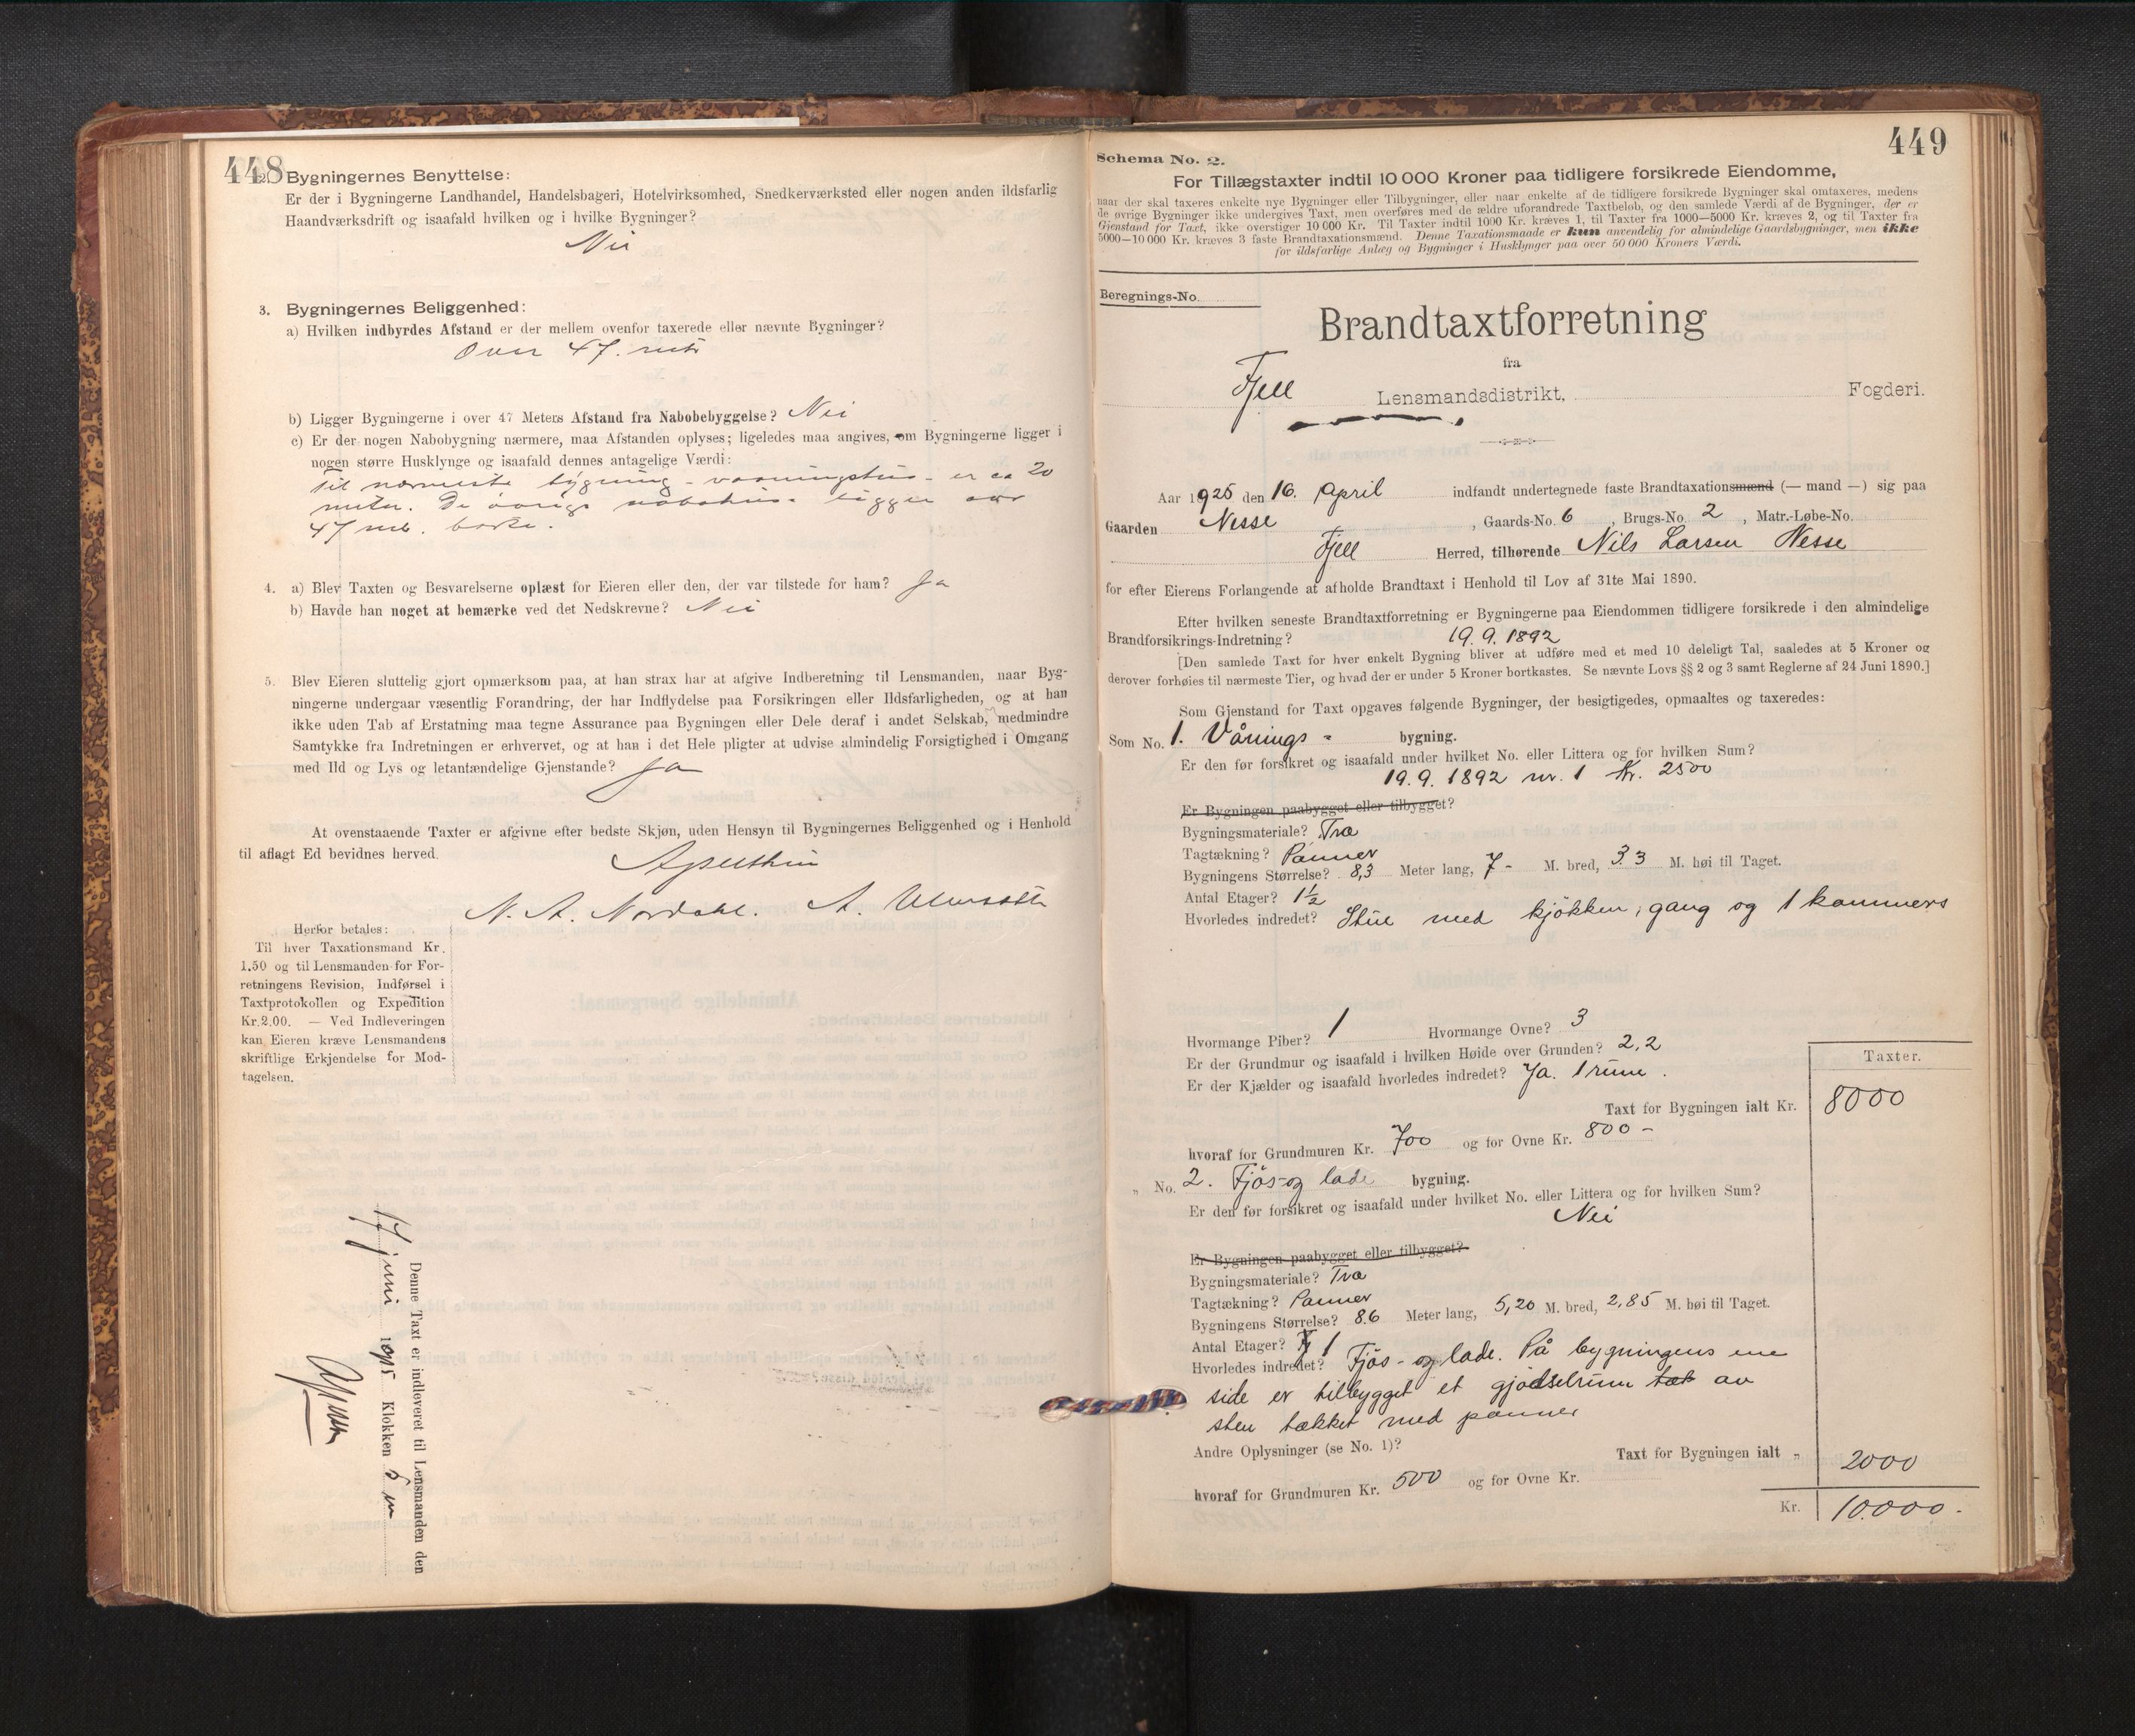 448
2. Bygningernes Benyttelse:
Er der i Bygningerne Landhandel, Handelsbageri, Hotelvirksomhed, Snedkerværksted eller nogen anden ildsfarlig
Haandværksdrift og isaafald hvilken og i hvilke Bygninger?
Nei
3. Bygningernes Beliggenhed:
a) Hvilken indbyrdes Afstand er der mellem ovenfor taxerede eller nævnte Bygninger?
Over 47. mtr
b) Ligger Bygningerne i over 47 Meters Afstand fra Nabobebyggelse? Nei
c) Er der nogen Nabobygning nærmere, maa Afstanden oplyses; ligeledes maa angives, om Bygningerne ligger i
nogen større Husklynge og isaafald dennes antagelige Værdi:
Til nærmeste bygning - vaaningshus - er ca 20
meter. De øvrige nabohus ligger over
47 mtr. borte.
4. a) Blev Taxten og Besvarelserne oplæst for Eieren eller den, der var tilstede for ham? Ja
b) Havde han noget at bemærke ved det Nedskrevne? Nei
5. Blev Eieren sluttelig gjort opmærksom paa, at han strax har at afgive Indberetning til Lensmanden, naar Byg-
ningerne undergaar væsentlig Forandring, der har Indflydelse paa Forsikringen eller Ildsfarligheden, og at han
ikke uden Tab af Erstatning maa tegne Assurance paa Bygningen eller Dele deraf i andet Selskab, medmindre
Samtykke fra Indretningen er erhvervet, og at han i det Hele pligter at udvise almindelig Forsigtighed i Omgang
med Ild og Lys og letantændelige Gjenstande? Ja
At ovenstaaende Taxter er afgivne efter bedste Skjøn, uden Hensyn til Bygningernes Beliggenhed og i Henhold
til aflagt Ed bevidnes herved.
N. A. Nordahl. A.
Herfor betales:
Til hver Taxationsmand Kr.
1.50 og til Lensmanden for For-
retningens Revision, Indførsel i
Taxtprotokollen og Expedition
Kr. 2.00. — Ved Indleveringen
kan Eieren kræve Lensmandens
skriftlige Erkjendelse for Mod-
tagelsen.
Denne Taxt er indleveret til Lensmanden den
17 juni 1925 Klokken 5 em
449
Schema No. 2.
For Tillægstaxter indtil 10 000 Kroner paa tidligere forsikrede Eiendomme,
naar der skal taxeres enkelte nye Bygninger eller Tilbygninger, eller naar enkelte af de tidligere forsikrede Bygninger skal omtaxeres, medens
de øvrige Bygninger ikke undergives Taxt, men overføres med de ældre uforandrede Taxtbeløb, og den samlede Værdi af de Bygninger, der er
Gjenstand for Taxt, ikke overstiger 10 000 Kr. Til Taxter indtil 1000 Kr. kræves 1, til Taxter fra 1000—5000 Kr. kræves 2, og til Taxter fra
5000—10 000 Kr. kræves 3 faste Brandtaxationsmænd. Denne Taxationsmaade er kun anvendelig for almindelige Gaardsbygninger, men ikke
for ildsfarlige Anlæg og Bygninger i Husklynger paa over 50 000 Kroners Værdi.
Beregnings-No.
Brandtaxtforretning
fra
Fjell Lensmandsdistrikt, Fogderi.
Aar 1925 den 16. April indfandt undertegnede faste Brandtaxationsmænd (— mand —) sig paa
Gaarden Nesse, Gaards-No. 6, Brugs-No. 2, Matr.-Løbe-No.
Fjell Herred, tilhørende Nils Larsen Nesse
for efter Eierens Forlangende at afholde Brandtaxt i Henhold til Lov af 31te Mai 1890.
Efter hvilken seneste Brandtaxtforretning er Bygningerne paa Eiendommen tidligere forsikrede i den almindelige
Brandforsikrings-Indretning? 19. 9. 1892
[Den samlede Taxt for hver enkelt Bygning bliver at udføre med et med 10 deleligt Tal, saaledes at 5 Kroner og
derover forhøies til nærmeste Tier, og hvad der er under 5 Kroner bortkastes. Se nævnte Lovs §§ 2 og 3 samt Reglerne af 24 Juni 1890.]
Som Gjenstand for Taxt opgaves følgende Bygninger, der besigtigedes, opmaaltes og taxeredes:
Som No. 1. Vånings - bygning.
Er den før forsikret og isaafald under hvilket No. eller Littera og for hvilken Sum?
19. 9. 1892 nr. 1 Kr. 2500
Er Bygningen paabygget eller tilbygget?
Bygningsmateriale? Træ
Tagtækning? Panner
Bygningens Størrelse? 8,3 Meter lang, 7 - M. bred, 3.3 M. høi til Taget.
Antal Etager? 1½
Hvorledes indredet? Stue med kjökken, gang og 1 kammers
Hvormange Piber? 1 Hvormange Ovne? 3
Er der Grundmur og isaafald i hvilken Høide over Grunden? 2,2
Er der Kjælder og isaafald hvorledes indredet? Ja. 1 rum.
Taxter.
Taxt for Bygningen ialt Kr. 8000
hvoraf for Grundmuren Kr. 700 og for Ovne Kr. 800 -
„ No. 2. Fjös- og lade bygning.
Er den før forsikret og isaafald under hvilket No. eller Littera og for hvilken Sum?
Nei
Er Bygningen paabygget eller tilbygget?
Bygningsmateriale? Træ
Tagtækning? Panner
Bygningens Størrelse? 8.6 Meter lang, 5,20 M. bred, 2,85 M. høi til Taget.
Antal Etager? 1
Hvorledes indredet? Fjös - og lade. På bygningens ene
side er tilbygget et gjödselrum tæk av
sten tækket med panner
Andre Oplysninger (se No. 1)?
Taxt for Bygningen ialt „ 2000
hvoraf for Grundmuren Kr. 500 og for Ovne Kr.
Kr. 10.000.-